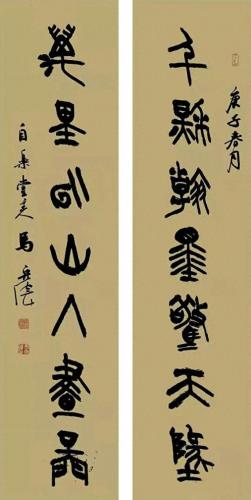 庚子春月
千秋翰墨驚天地
萬里山入畫圖
自樂堂主馬